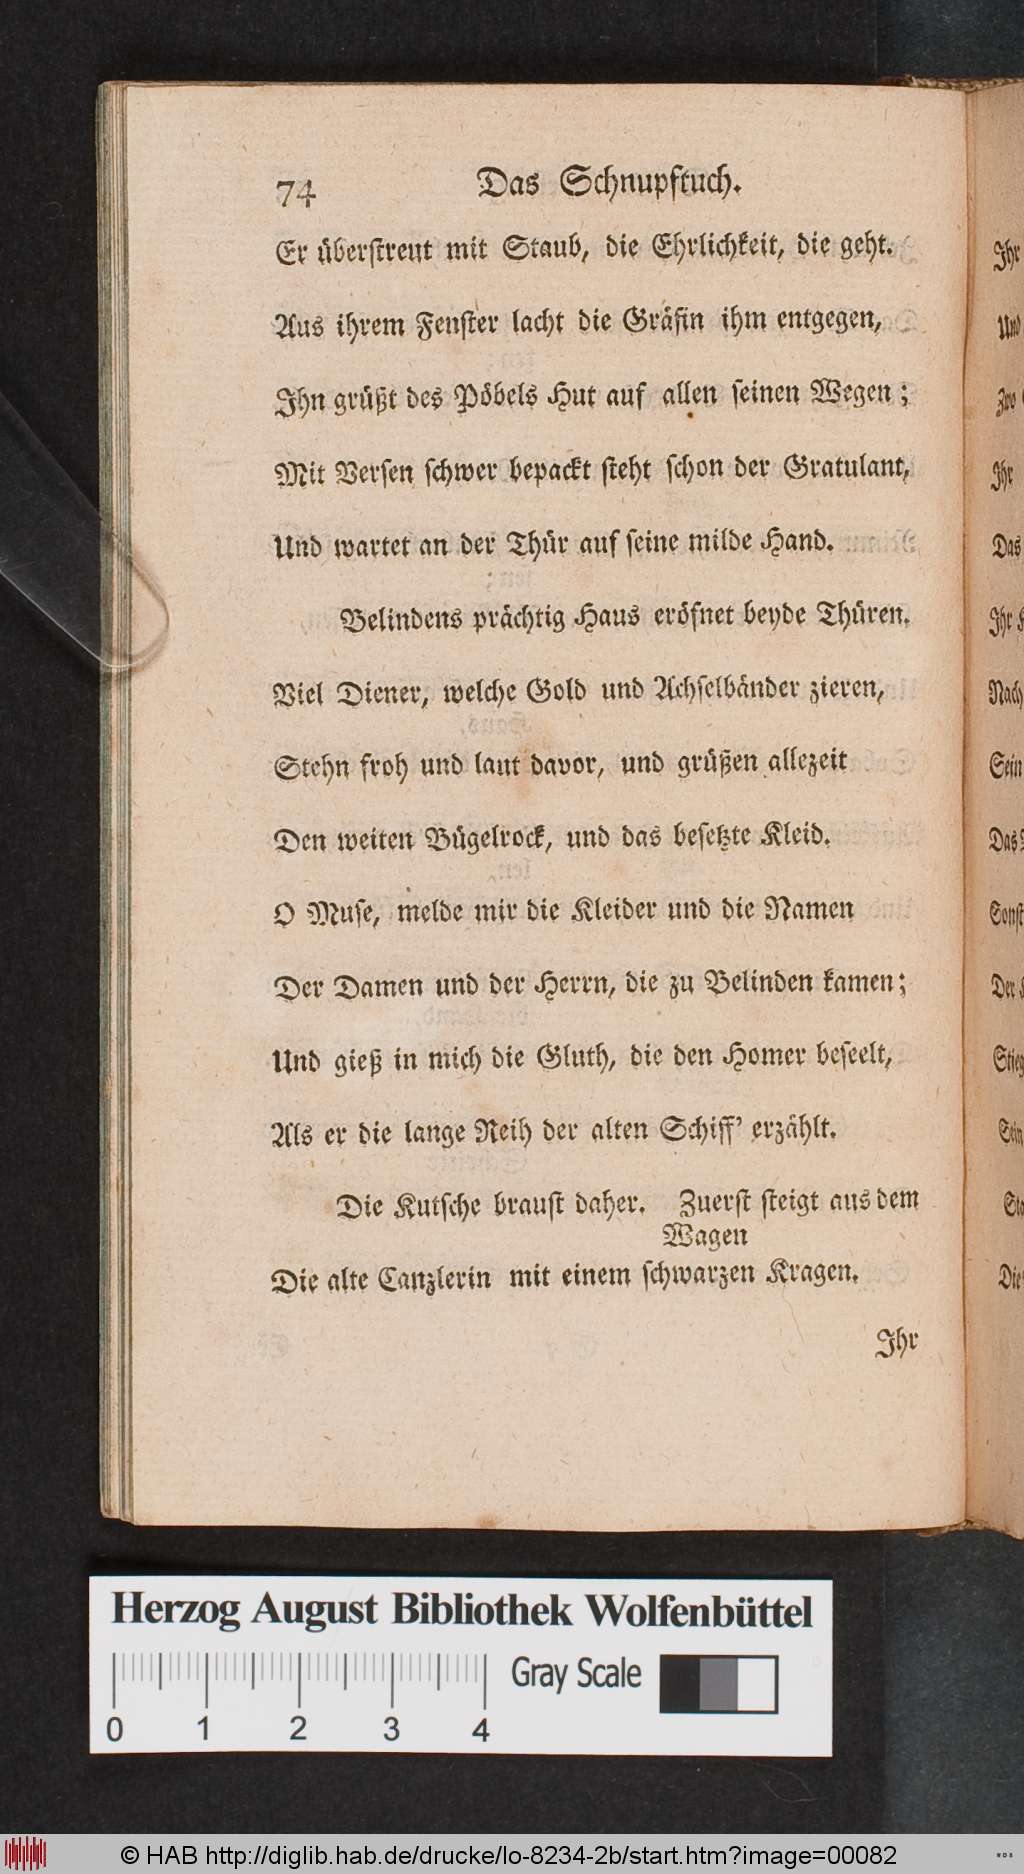 74 Das Schnupftuch.
Er überstreut mit Staub, die Ehrlichkeit, die geht.
Aus ihrem Fenster lacht die Gräfin ihm entgegen,
Ihn grüßt des Pöbels Hut auf allen seinen Wegen;
Mit Versen schwer bepackt steht schon der Gratulant,
Und wartet an der Thür auf seine milde Hand.
Belindens prächtig Haus eröfnet beyde Thüren.
Viel Diener, welche Gold und Achselbänder zieren,
Stehn froh und laut davor, und grüßen allezeit
Den weiten Bügelrock, und das besetzte Kleid.
O Muse, melde mir die Kleider und die Namen
Der Damen und der Herrn, die zu Belinden kamen;
Und gieß in mich die Gluth, die den Homer beseelt,
Als er die lange Reih der alten Schiff' erzählt.
Die Kutsche braust daher. Zuerst steigt aus dem
Wagen
Die alte Canzlerin mit einem schwarzen Kragen.
Ihr
Ihr
Und
Zwo
Ihr
Das
Ihr
Nach
Sein
Das
Sonst
Der
Stieg
Sein
Die
Herzog August Bibliothek Wolfenbüttel
Gray Scale
0 1 2 3 4
© HAB http://diglib.hab.de/drucke/lo-8234-2b/start.htm?image=00082